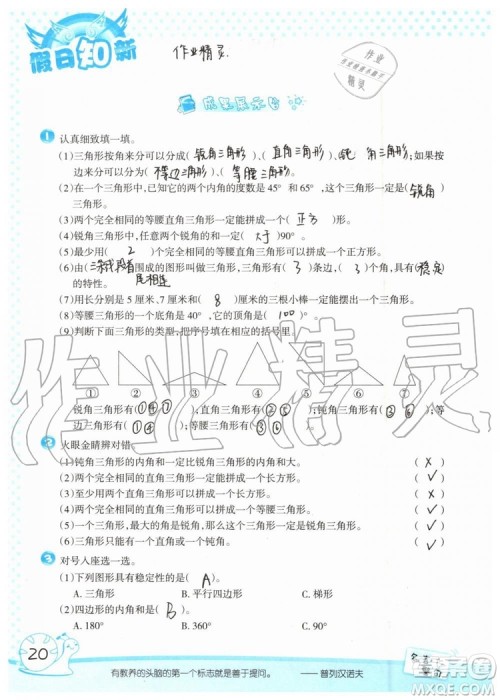 假日知新
作业精灵
作业
精灵
成果展示台
1 认真细致填一填。
(1)三角形按角来分可以分成(锐角三角形)、(直角三角形)、(钝角三角形);如果按
边来分可以分为(等边三角形)、(等腰三角形)。
(2)在一个三角形中,已知它的两个内角的度数是45°和65°,这个三角形一定是(锐角)
三角形。
(3)两个完全相同的等腰直角三角形一定能拼成一个(正方)形。
(4)锐角三角形中,任意两个锐角的和一定(大于)90°。
(5)最少用(2)个完全相同的等腰直角三角形可以拼成一个正方形。
(6)由(三条线段首尾相连)围成的图形叫做三角形,三角形有(3)条边,(3)个角,具有(稳定)
的特性。
(7)用长分别是5厘米、7厘米和(8)厘米的三根小棒一定能摆出一个三角形。
(8)等腰三角形的一个底角是40°,它的顶角是(100°)。
(9)判断下面三角形的类型,把序号填在相应的括号里。
① ② ③ ④ ⑤ ⑥ ⑦
锐角三角形有( );直角三角形有( );钝角三角形有( );等
边三角形有( );等腰三角形有( )。
2 火眼金睛辨对错。
(1)钝角三角形的内角和一定比锐角三角形的内角和大。 (×)
(2)两个完全相同的直角三角形可以拼成一个长方形。 (√)
(3)至少用两个直角三角形可以拼成一个长方形。 (×)
(4)两个完全相同的直角三角形可以拼成一个长方形。 (√)
(5)一个三角形,最大的角是锐角,那么这个三角形一定是锐角三角形。 (√)
(6)三角形只能有一个直角或一个钝角。 (√)
3 对号入座选一选。
(1)下列图形具有稳定性的是(A)。
A. 三角形 B. 平行四边形 C. 梯形
(2)四边形的内角和是(B)。
A. 180° B. 360° C. 90°
20
有教养的头脑的第一个标志就是善于提问。 ——普列汉诺夫
作业精灵